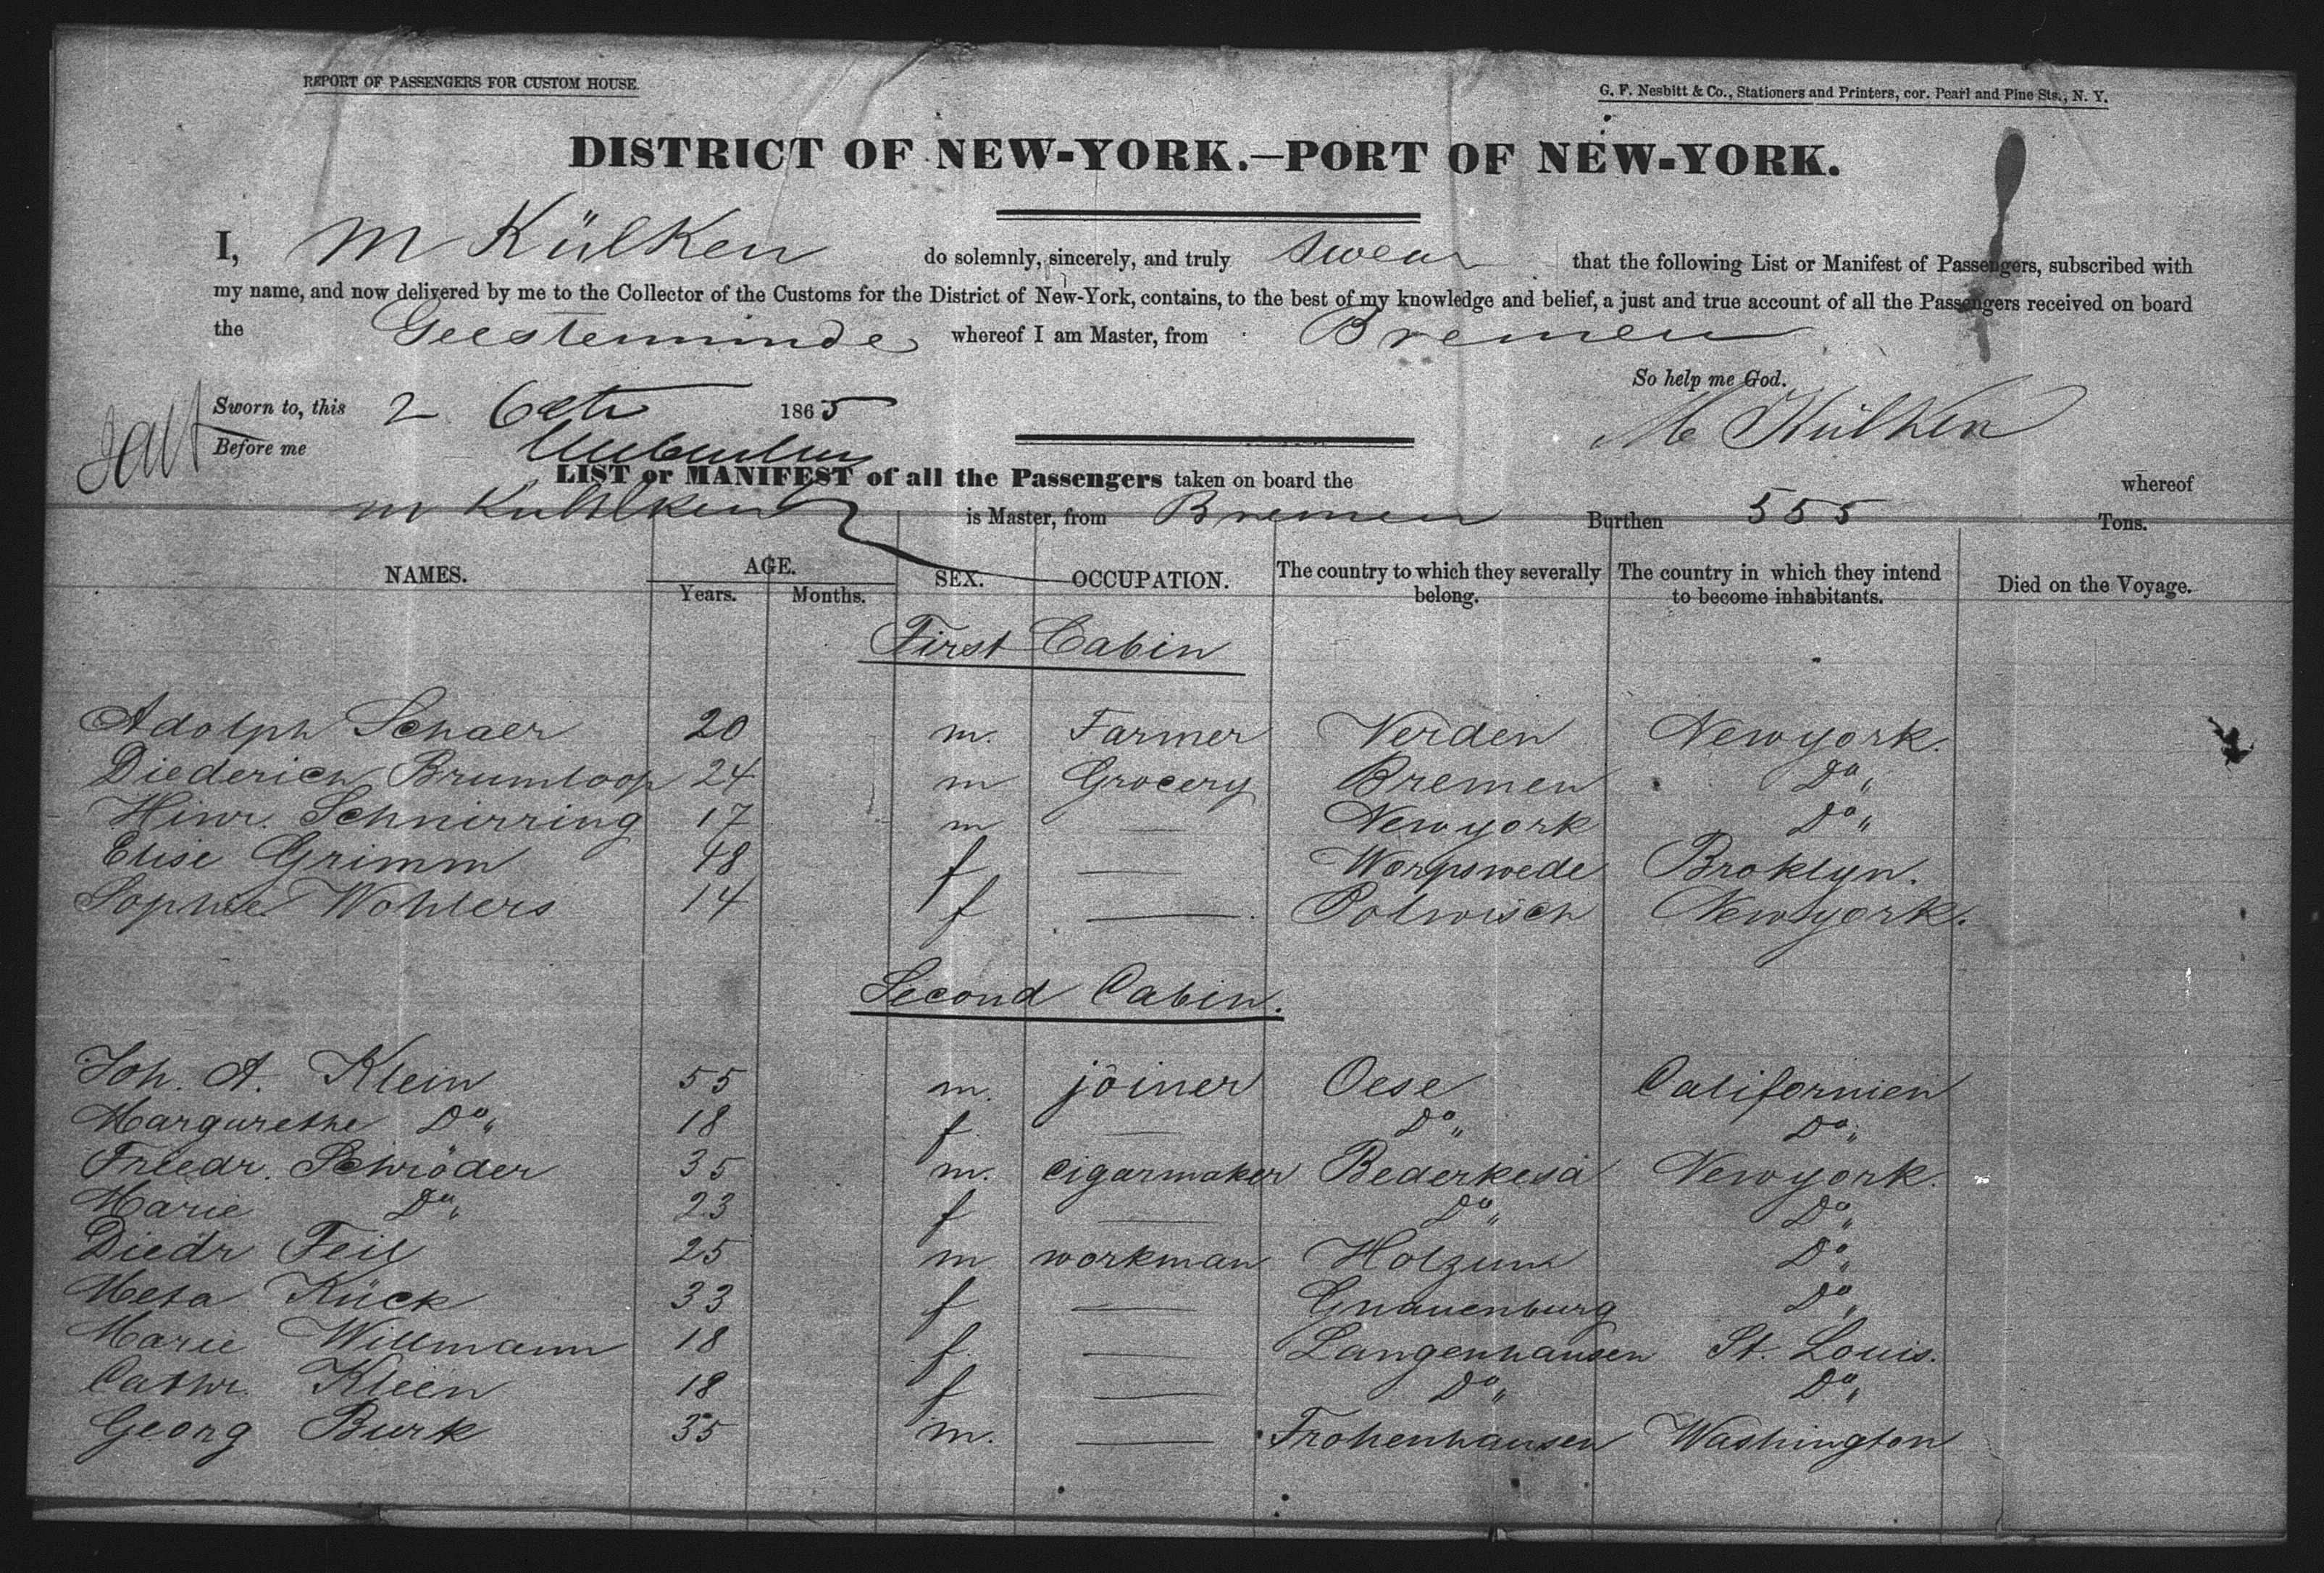 REPORT OF PASSENGERS FOR CUSTOM HOUSE.
G. F. Nesbitt & Co., Stationers and Printers, cor. Pearl and Pine Sts., N. Y.
DISTRICT OF NEW-YORK.—PORT OF NEW-YORK.
I, M Külken do solemnly, sincerely, and truly swear that the following List or Manifest of Passengers, subscribed with
my name, and now delivered by me to the Collector of the Customs for the District of New-York, contains, to the best of my knowledge and belief, a just and true account of all the Passengers received on board
the Geesteminde whereof I am Master, from Bremen
So help me God.
Sworn to, this 2 Octr 1865
M Külken
Before me
LIST or MANIFEST of all the Passengers taken on board the whereof
is Master, from Bremen Burthen 555 Tons.
NAMES. AGE. SEX. OCCUPATION. The country to which they severally belong. The country in which they intend to become inhabitants. Died on the Voyage.
Years. Months.
First Cabin
Adolph Schaer 20 m. Farmer Verden Newyork.
Diederich Brumloop 24 m Grocery Bremen Do"
Hinr. Schnirring 17 m — Newyork Do"
Elise Grimm 48 f — Worpswede Broklyn.
Sophie Wohlers 14 f — Polwisch Newyork.
Second Cabin.
Joh. A. Klein 55 m. joiner Oese Californien
Margurethe Do" 18 f. — Do" Do"
Friedr. Schröder 35 m. cigarmaker Bederkesa Newyork.
Marie Do" 23 f — Do" Do"
Diedr Feil 25 m workman Holzum Do"
Meta Kück 33 f — Gnauenburg Do"
Marie Willmann 18 f. — Langenhausen St. Louis.
Cathr. Klein 18 f — Do" Do"
Georg Burk 35 m. — Frohenhausen Washington